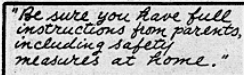 "Be sure you have full
instructions from parents,
including safety
measures at home."